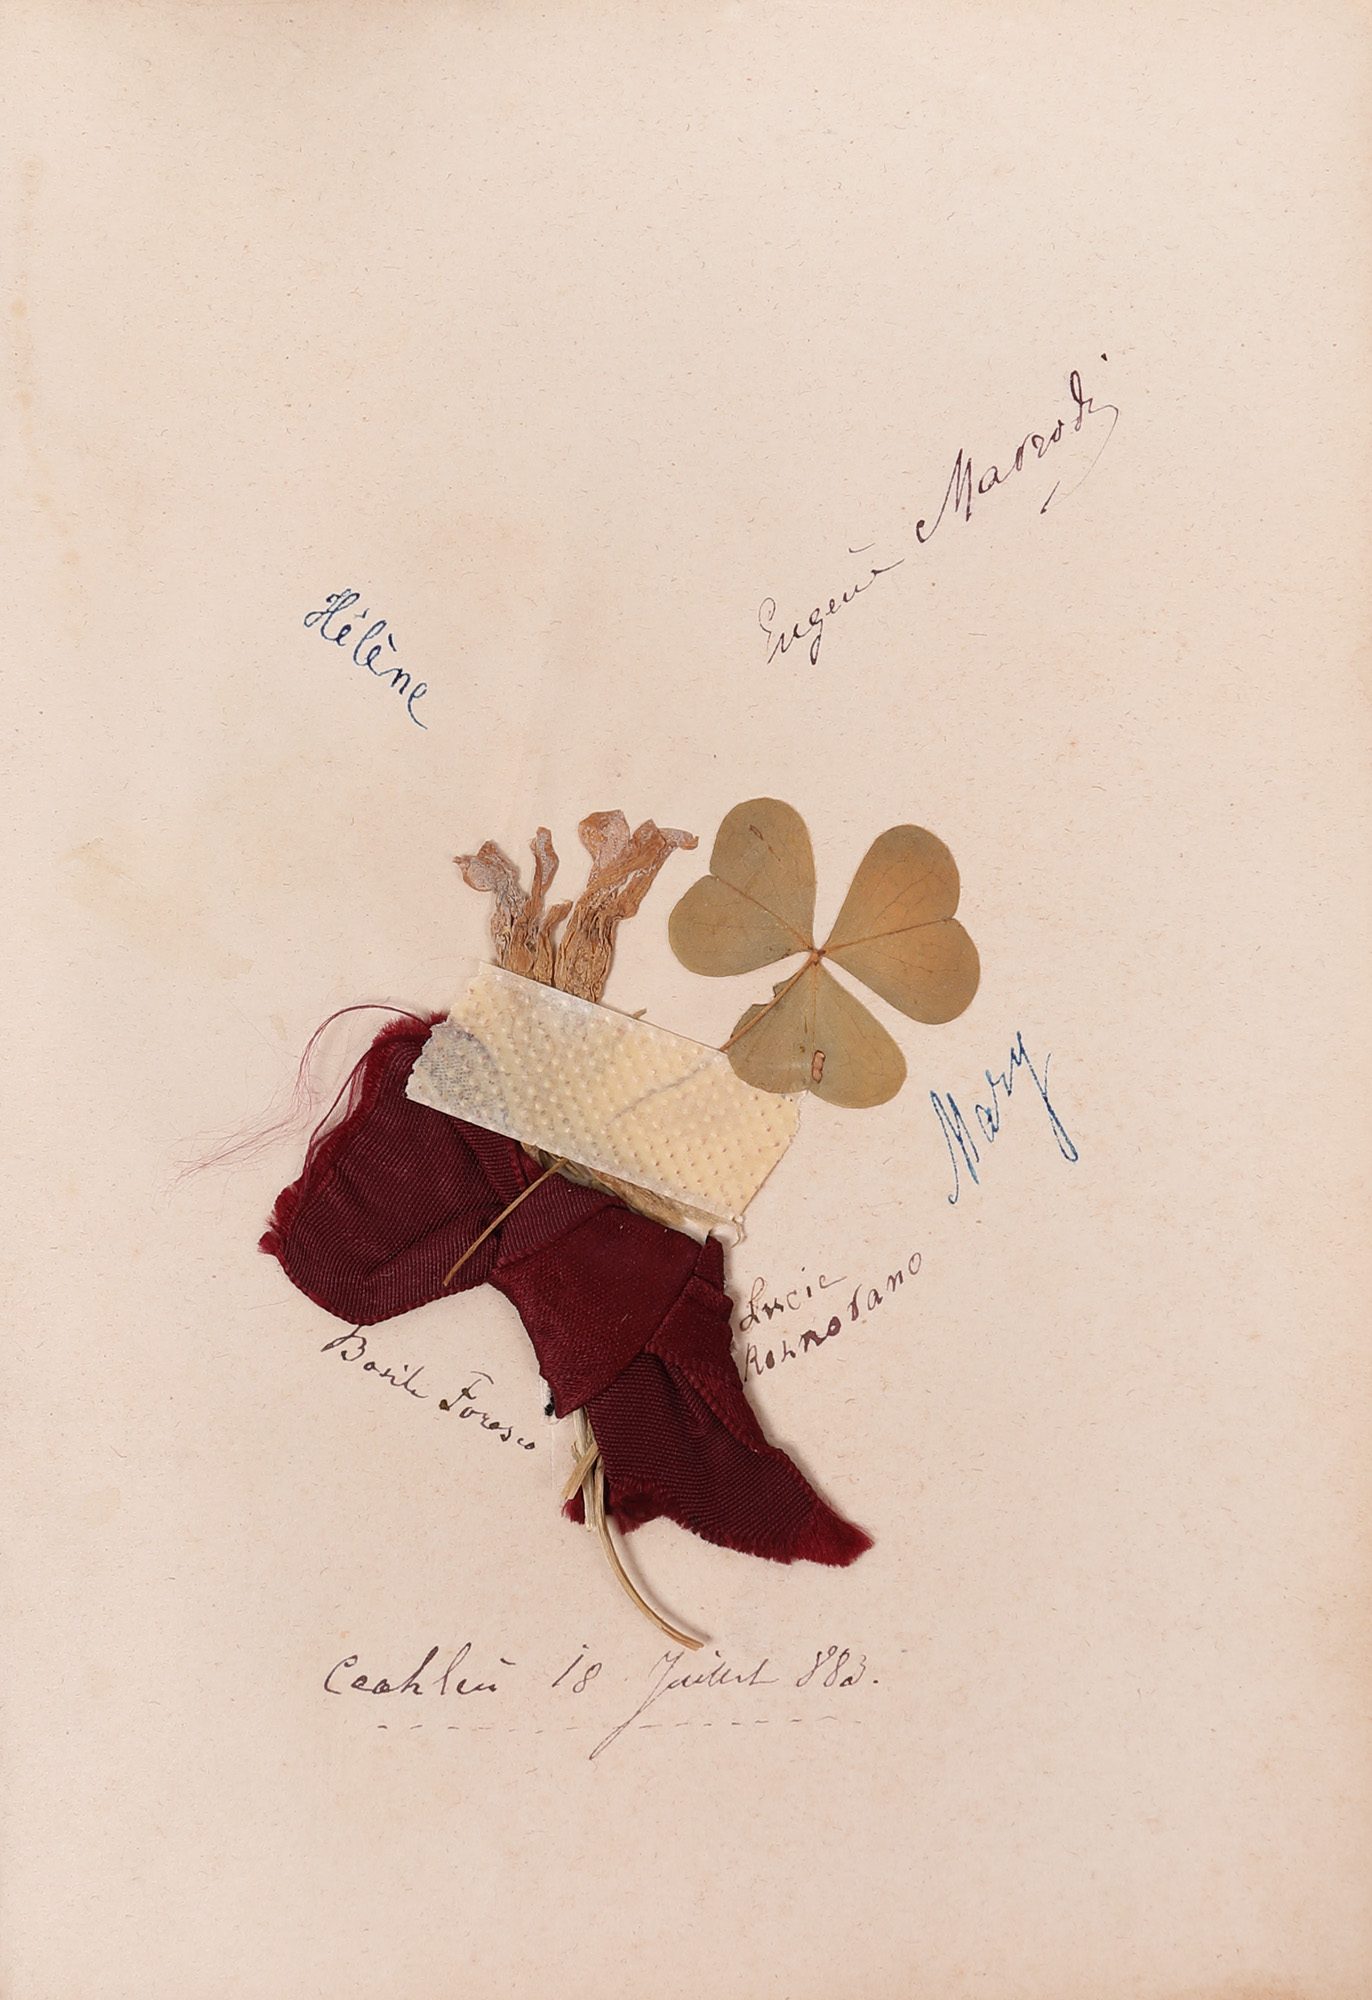 Eugenie Mavrodi
Hélène
Mary
Lucie
Rosnovano
Basile Foresco
Ceahlău 18 Juillet 883.